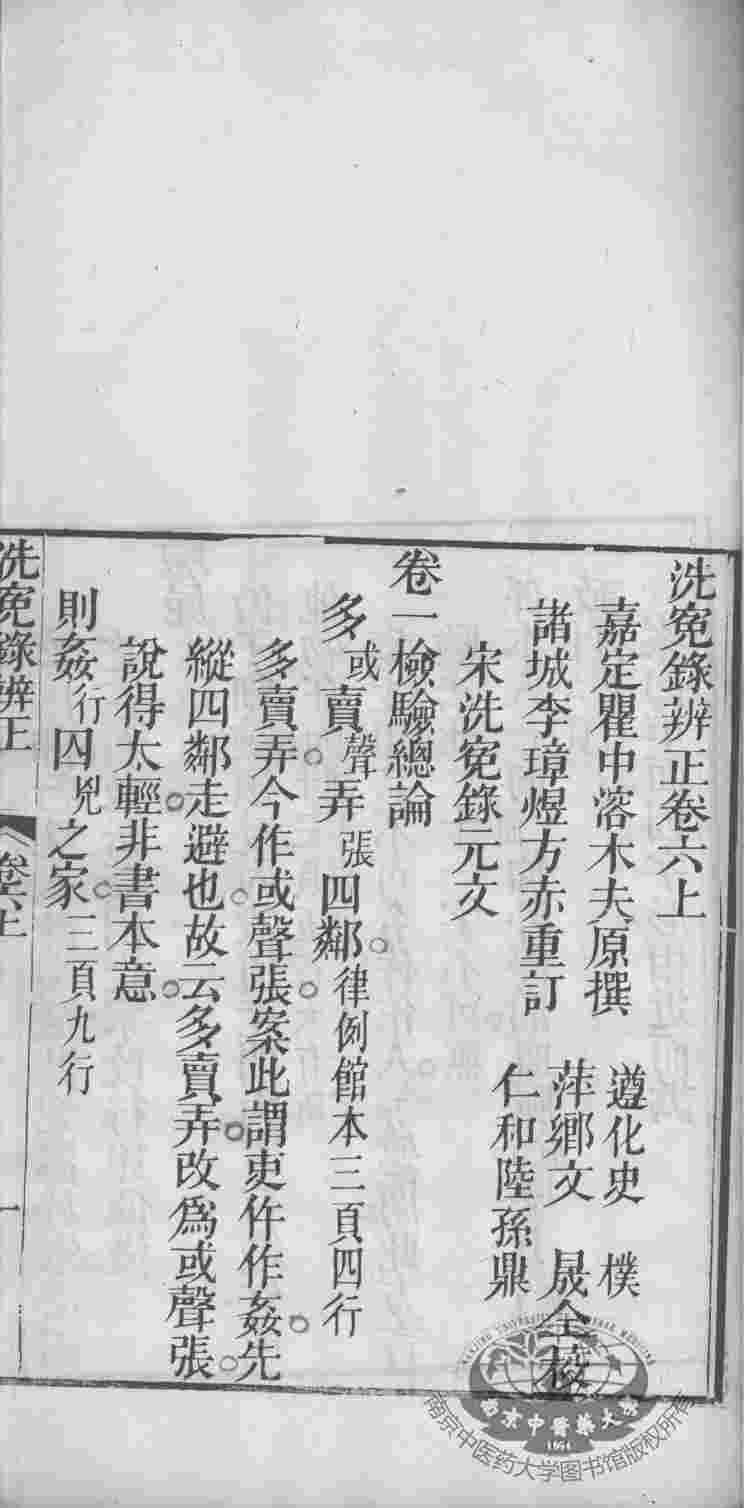 洗寃錄辨正卷六上
嘉定瞿中溶木夫原撰 遵化史 樸
諸城李璋煜方赤重訂 萍鄉文 晟仝校
仁和陸孫鼎
宋洗寃錄元文
卷一檢驗總論
多或賣聲弄張四鄰。律例館本三頁四行
多賣弄。今作或聲張。案此謂吏仵作姦。先
縱四鄰走避也。故云多賣弄。改為或聲張。
說得太輕。非書本意。
則姦行囚兇之家。三頁九行
洗寃錄辨正 卷六上 一
NANJING UNIVERSITY CHINESE MEDICINE
南京中醫藥大學
1954
南京中医药大学图书馆版权所有